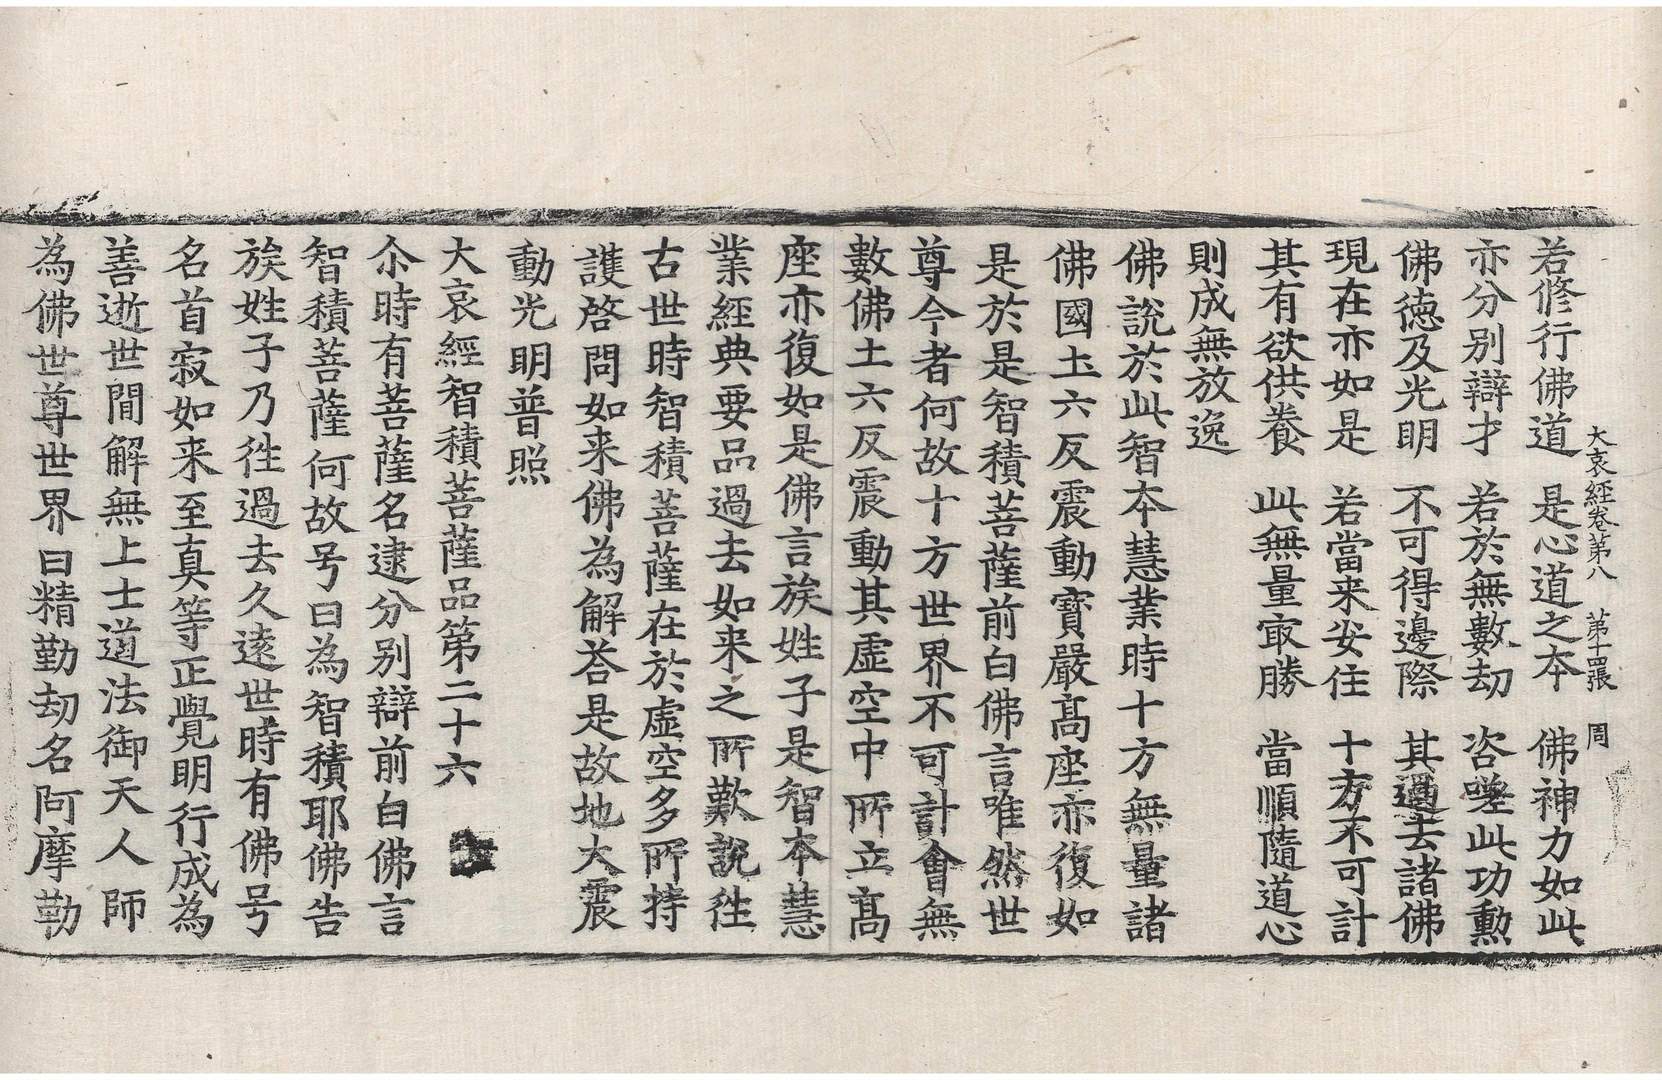 大哀經卷第八　第十四張　周
若修行佛道　是心道之本　佛神力如此
亦分別辯才　若於無數劫　咨嗟此功勲
佛德及光明　不可得邊際　其過去諸佛
現在亦如是　若當来安住　十方不可計
其有欲供養　此無量㝡勝　當順隨道心
則成無放逸
佛說於此智本慧業時十方無量諸
佛國圡六反震動寳嚴髙座亦復如
是於是智積菩薩前白佛言唯然世
尊今者何故十方世界不可計會無
數佛土六反震動其虛空中所立髙
座亦復如是佛言族姓子是智本慧
業經典要品過去如来之所歎說徃
古世時智積菩薩在於虛空多所持
護啓問如来佛為解荅是故地大震
動光明普照
大哀經智積菩薩品第二十六
尒時有菩薩名逮分別辯前白佛言
智積菩薩何故号曰為智積耶佛告
族姓子乃徃過去久遠世時有佛号
名首寂如来至真等正覺明行成為
善逝世間解無上士道法御天人師
為佛世尊世界曰精勤劫名阿摩勒